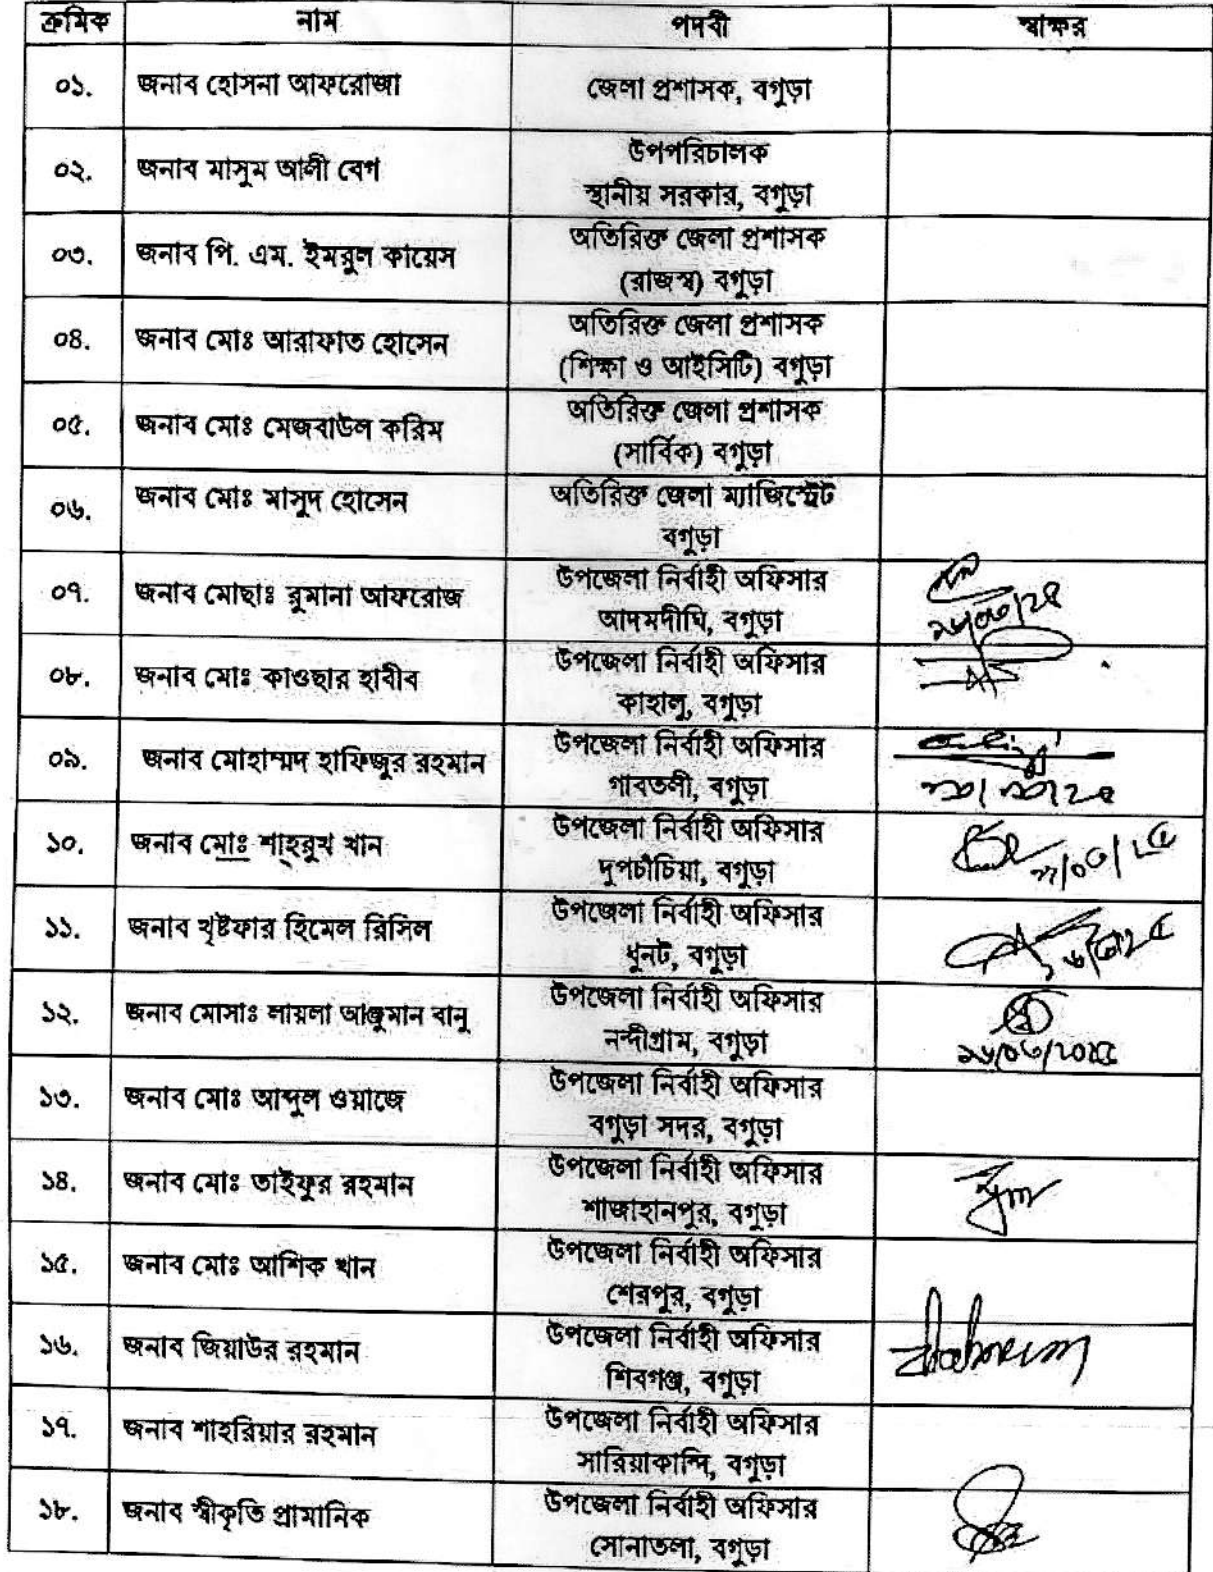 ক্রমিক নাম পদবী স্বাক্ষর
০১. জনাব হোসনা আফরোজা জেলা প্রশাসক, বগুড়া
০২. জনাব মাসুম আলী বেগ উপপরিচালক
স্থানীয় সরকার, বগুড়া
০৩. জনাব পি. এম. ইমরুল কায়েস অতিরিক্ত জেলা প্রশাসক
(রাজস্ব) বগুড়া
০৪. জনাব মোঃ আরাফাত হোসেন অতিরিক্ত জেলা প্রশাসক
(শিক্ষা ও আইসিটি) বগুড়া
০৫. জনাব মোঃ মেজবাউল করিম অতিরিক্ত জেলা প্রশাসক
(সার্বিক) বগুড়া
০৬. জনাব মোঃ মাসুদ হোসেন অতিরিক্ত জেলা ম্যাজিস্ট্রেট
বগুড়া
০৭. জনাব মোছাঃ রুমানা আফরোজ উপজেলা নির্বাহী অফিসার
আদমদীঘি, বগুড়া ১৬/০৩/২৫
০৮. জনাব মোঃ কাওছার হাবীব উপজেলা নির্বাহী অফিসার
কাহালু, বগুড়া
০৯. জনাব মোহাম্মদ হাফিজুর রহমান উপজেলা নির্বাহী অফিসার
গাবতলী, বগুড়া
১০. জনাব মোঃ শাহরুখ খান উপজেলা নির্বাহী অফিসার
দুপচাঁচিয়া, বগুড়া
১১. জনাব খৃষ্টফার হিমেল রিসিল উপজেলা নির্বাহী অফিসার
ধুনট, বগুড়া
১২. জনাব মোসাঃ লায়লা আঞ্জুমান বানু উপজেলা নির্বাহী অফিসার
নন্দীগ্রাম, বগুড়া ১৬/০৩/২০২৫
১৩. জনাব মোঃ আব্দুল ওয়াজে উপজেলা নির্বাহী অফিসার
বগুড়া সদর, বগুড়া
১৪. জনাব মোঃ তাইফুর রহমান উপজেলা নির্বাহী অফিসার
শাজাহানপুর, বগুড়া
১৫. জনাব মোঃ আশিক খান উপজেলা নির্বাহী অফিসার
শেরপুর, বগুড়া
১৬. জনাব জিয়াউর রহমান উপজেলা নির্বাহী অফিসার
শিবগঞ্জ, বগুড়া
১৭. জনাব শাহরিয়ার রহমান উপজেলা নির্বাহী অফিসার
সারিয়াকান্দি, বগুড়া
১৮. জনাব স্বীকৃতি প্রামানিক উপজেলা নির্বাহী অফিসার
সোনাতলা, বগুড়া